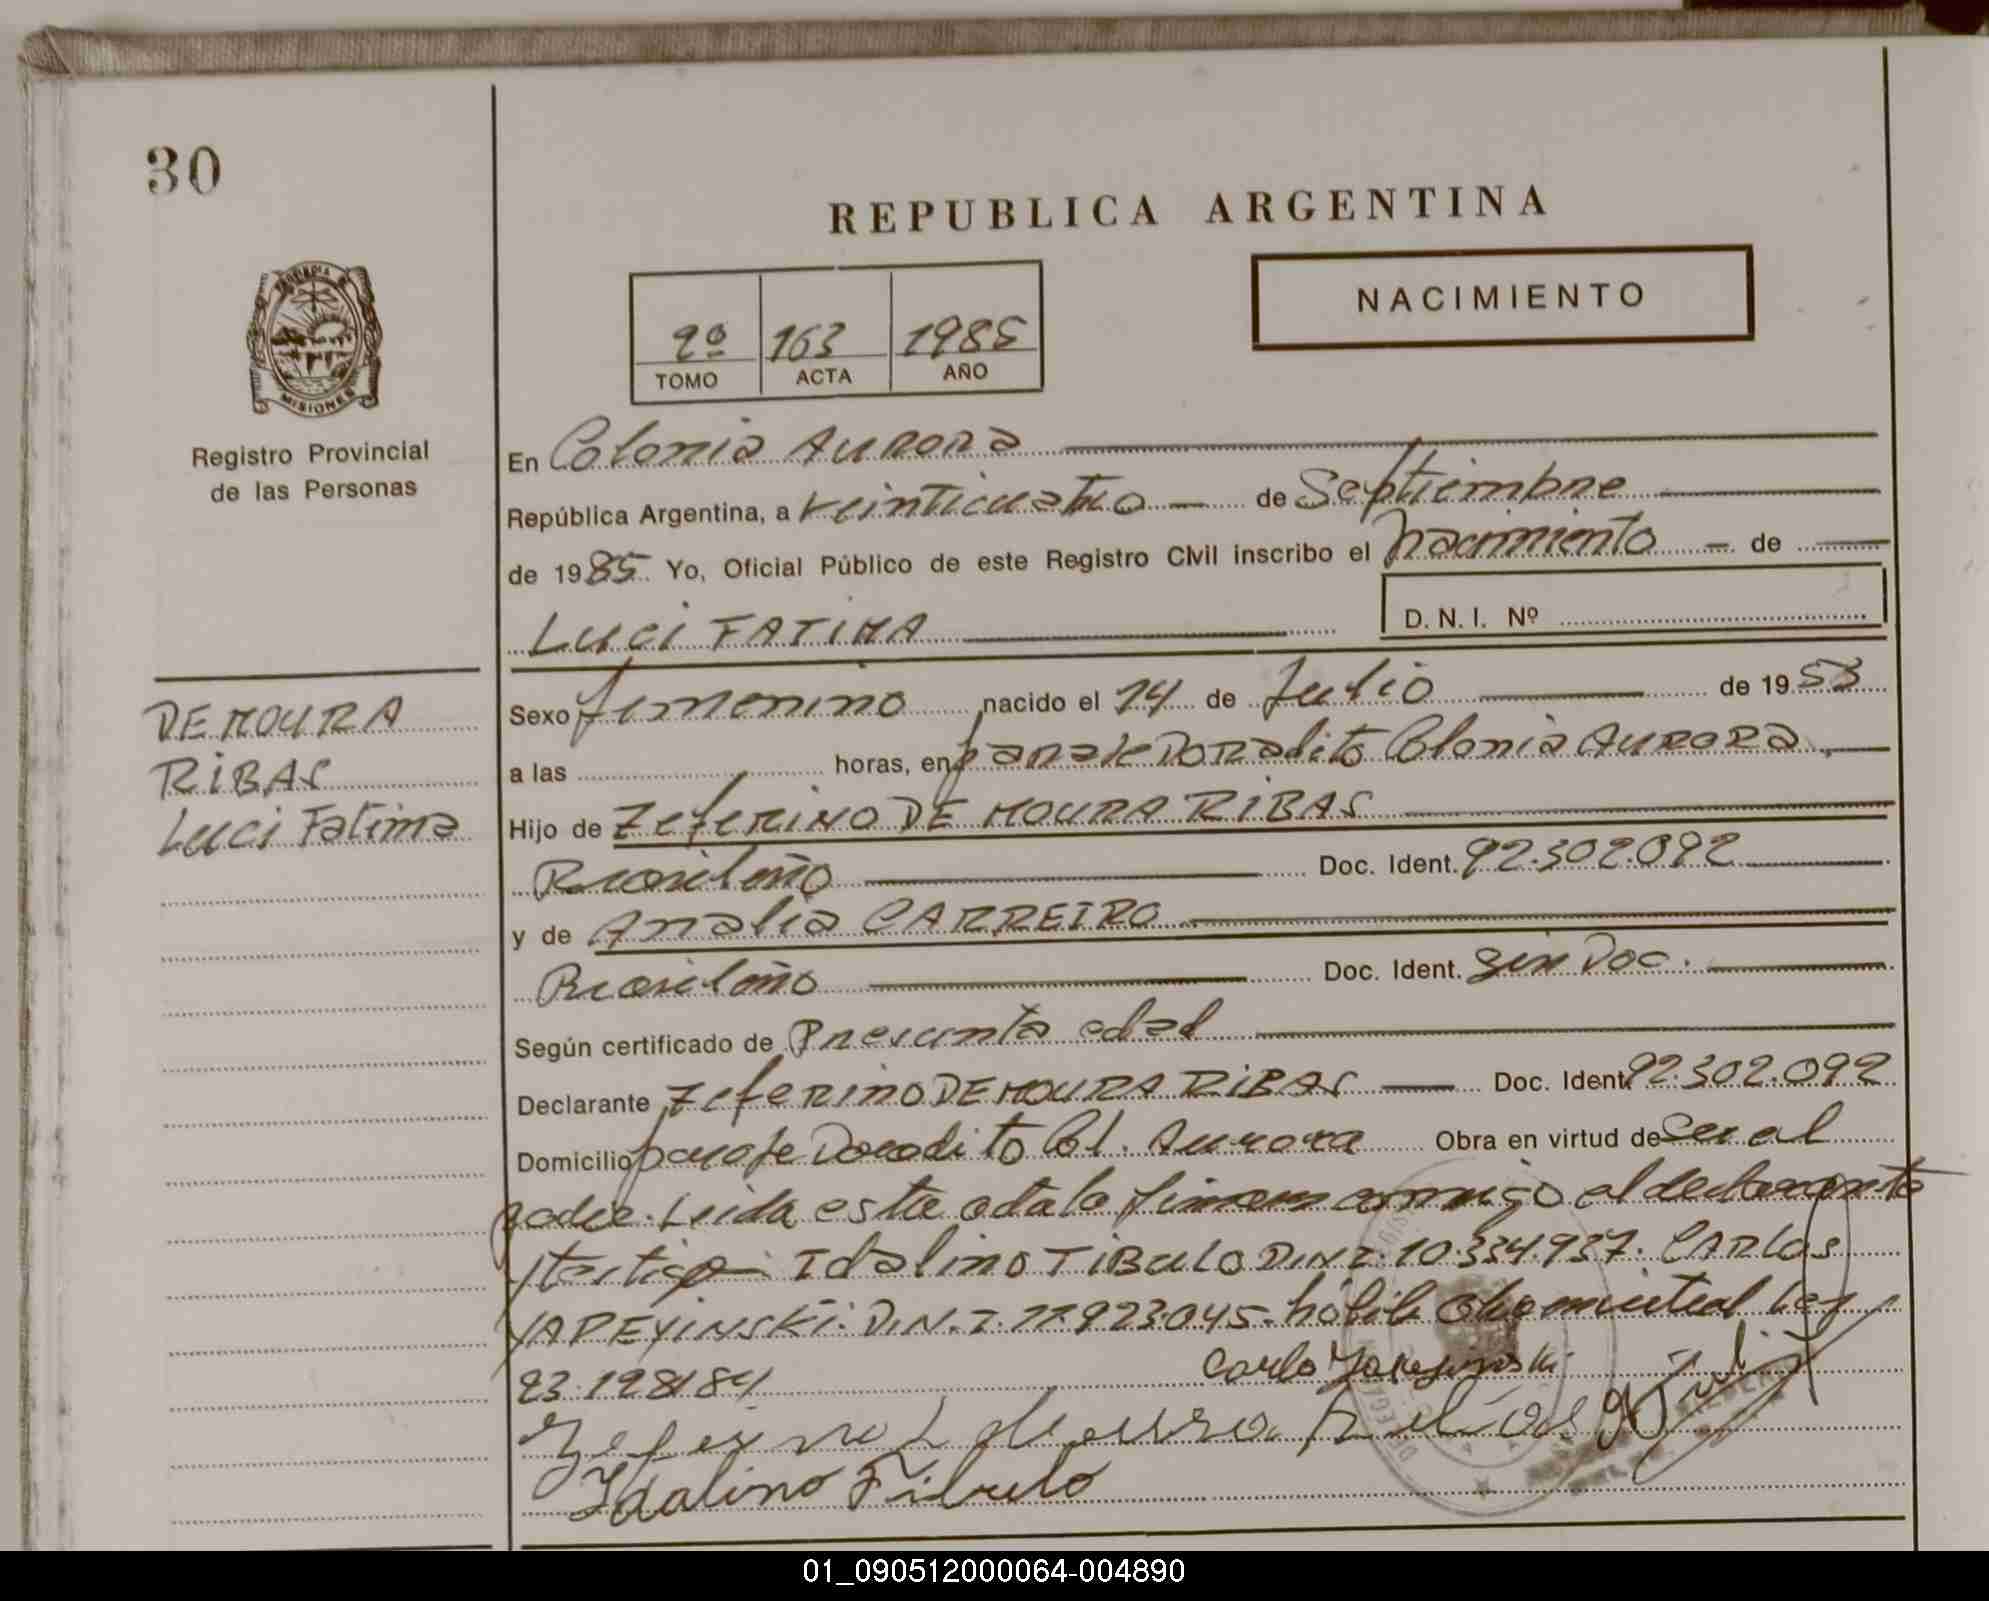 30
REPUBLICA ARGENTINA
NACIMIENTO
2º 163 1985
TOMO ACTA AÑO
PROVINCIA DE
MISIONES
Registro Provincial
de las Personas
En Colonia AURORA
República Argentina, a veinticuatro — de Septiembre
de 1985. Yo, Oficial Público de este Registro Civil inscribo el nacimiento — de
LUCI FATIMA
D. N. I. Nº
DE MOURA
RIBAS
Luci Fatima
Sexo femenino nacido el 14 de Julio de 1953
a las horas, en paraje Doradito Colonia AURORA
Hijo de ZefeRINO DE MOURA RIBAS
Brasileño Doc. Ident. 92.302.092
y de Analia CARREIRO
Brasileño Doc. Ident. Sin Doc.
Según certificado de Presunta edad
Declarante ZefeRINO DE MOURA RIBAS Doc. Ident. 92.302.092
Domicilio paraje Doradito Col. Aurora Obra en virtud de Ser el
padre. Leida esta acta la firman conmigo el declarante
y testigo Idalino TIBULO D.N.I. 10.334.937. CARLOS
YAPEYINSKi. D.N.I. 11.923.045.
23.128/84
Carlo
Idalino Tibulo
01_090512000064-004890